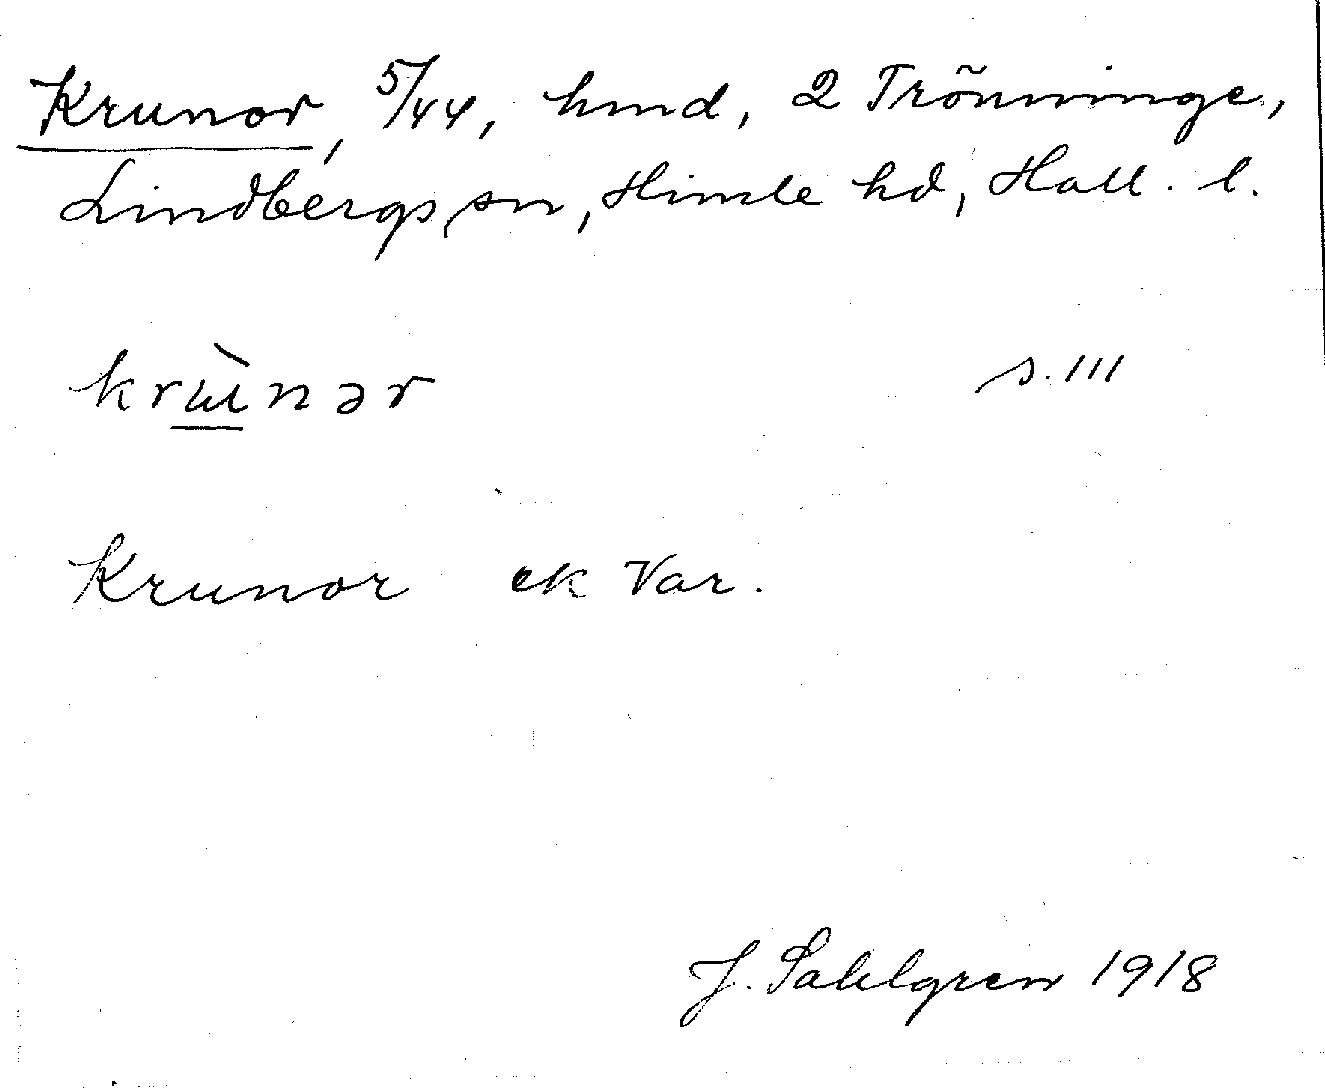 Krunor, 5/44, hmd, 2 Trönninge,
Lindbergs sn, Himle hd, Hall. l.
krɯ̀nər s. 111
Krunor ek Var.
J. Sahlgren 1918